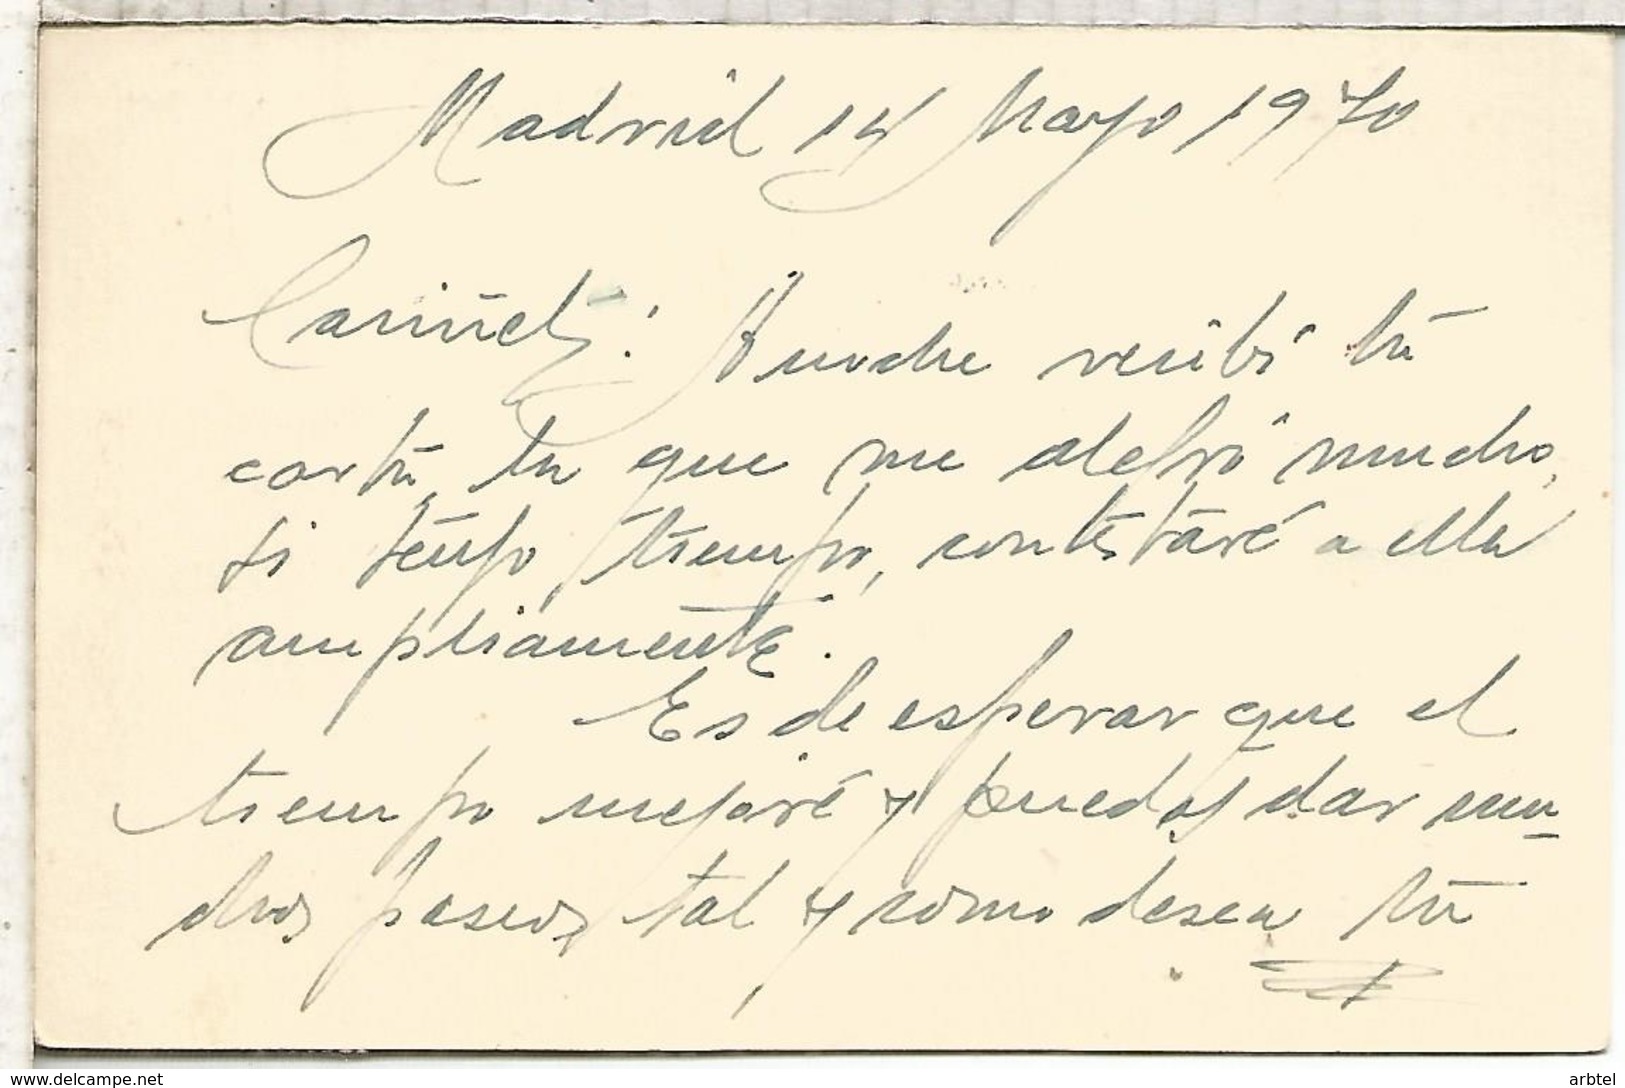 Madrid 14 Mayo 1970
Anoche recibí tu
carta, la que me alegró mucho,
si tengo tiempo, contestaré a ella
ampliamente.
Es de esperar que el
tiempo mejoré y puedas dar mu-
chos paseos, tal y como desea tu
www.delcampe.net
arbtel